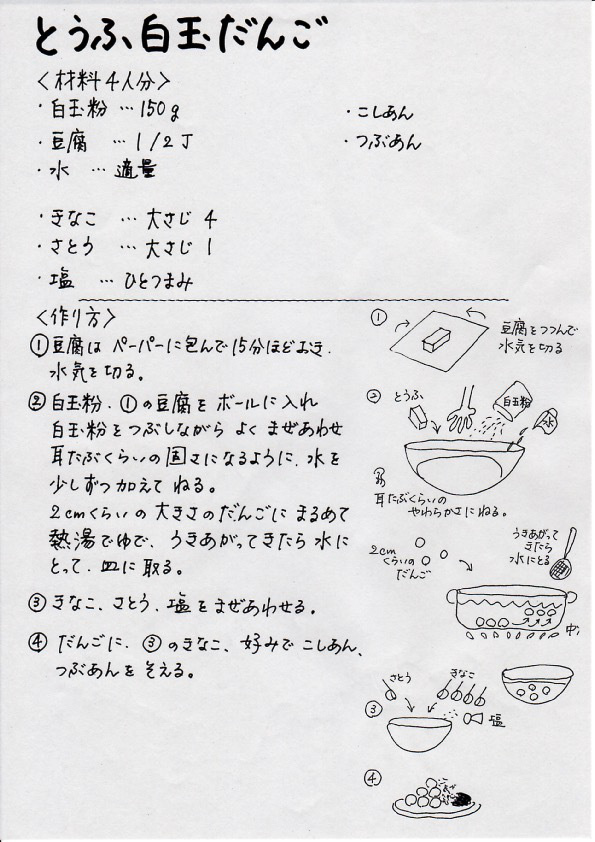 とうふ白玉だんご
〈材料4人分〉
・白玉粉 … 150g
・こしあん
・豆腐 … 1/2丁
・つぶあん
・水 … 適量
・きなこ … 大さじ 4
・さとう … 大さじ 1
・塩 … ひとつまみ
〈作り方〉
①豆腐は ペーパーに包んで15分ほどおき、
水気を切る。
②白玉粉、①の豆腐を ボールに入れ
白玉粉をつぶしながら よく まぜあわせ
耳たぶくらいの固さになるように、水を
少しずつ加えて ねる。
2cmくらいの大きさのだんごに まるめて
熱湯でゆで、うきあがってきたら 水に
とって、皿に取る。
③きなこ、さとう、塩をまぜあわせる。
④だんごに、③のきなこ、好みで こしあん、
つぶあんを そえる。
①
豆腐をつつんで
水気を切る
②
とうふ
白玉粉
水
耳たぶくらいの
やわらかさにねる。
2cm
くらいの
だんご
うきあがって
きたら
水にとる
中
③
さとう
きなこ
塩
④